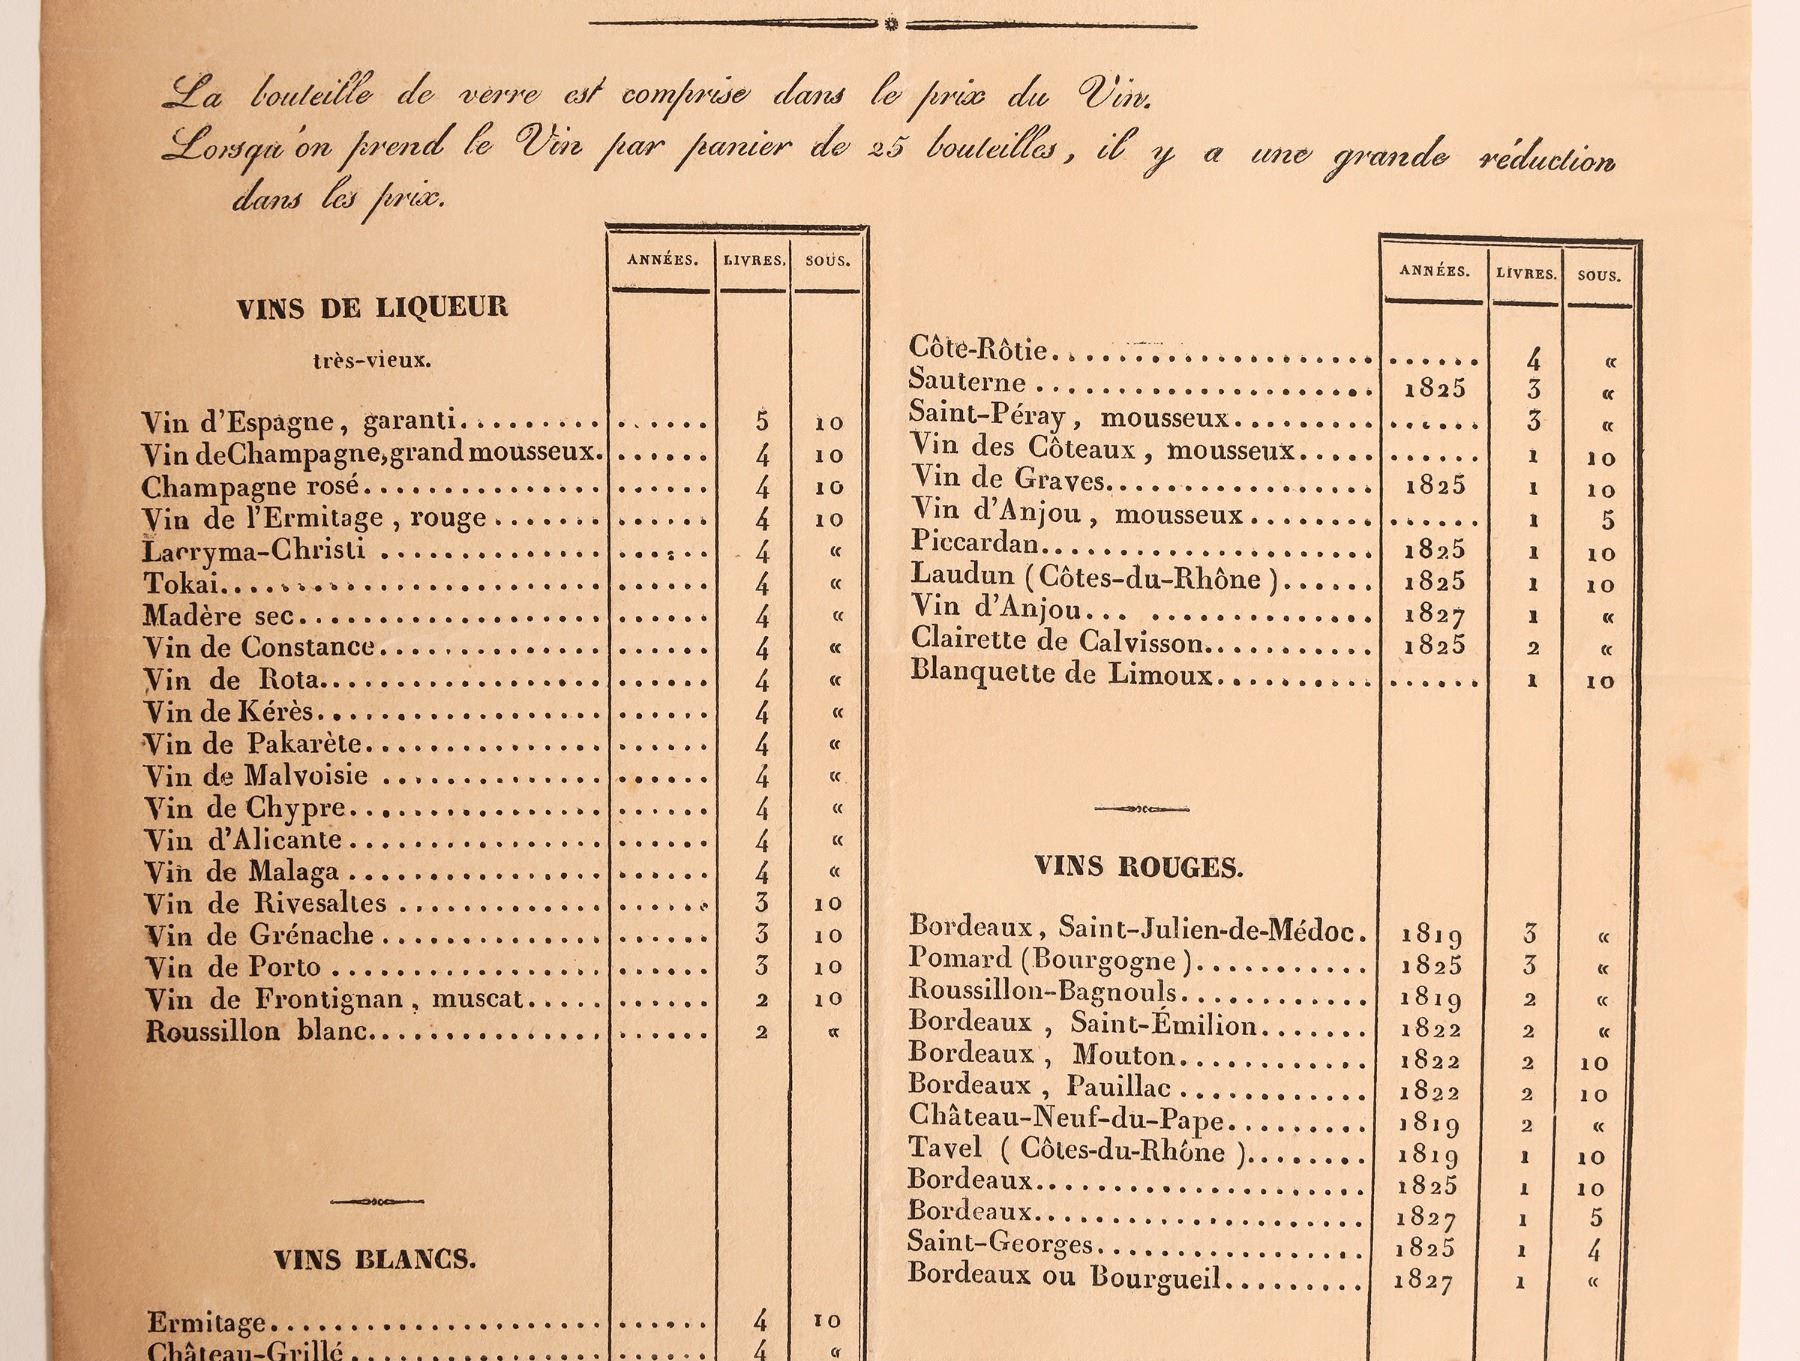 La bouteille de verre est comprise dans le prix du Vin.
Lorsqu'on prend le Vin par panier de 25 bouteilles, il y a une grande réduction
dans les prix.
ANNÉES. LIVRES. SOUS.
VINS DE LIQUEUR
très-vieux.
Vin d'Espagne, garanti......... ...... 5 10
Vin deChampagne,grand mousseux. ...... 4 10
Champagne rosé............... ...... 4 10
Vin de l'Ermitage, rouge....... ...... 4 10
Lacryma-Christi .............. ...... 4 «
Tokai....................... ...... 4 «
Madère sec................... ...... 4 «
Vin de Constance.............. ...... 4 «
Vin de Rota.................. ...... 4 «
Vin de Kérès.................. ...... 4 «
Vin de Pakarète............... ...... 4 «
Vin de Malvoisie .............. ...... 4 «
Vin de Chypre................ ...... 4 «
Vin d'Alicante................ ...... 4 «
Vin de Malaga................ ...... 4 «
Vin de Rivesaltes ............. ...... 3 10
Vin de Grénache.............. ...... 3 10
Vin de Porto ................. ...... 3 10
Vin de Frontignan, muscat..... ...... 2 10
Roussillon blanc............... ...... 2 «
VINS BLANCS.
Ermitage..................... ...... 4 10
Château-Grillé................ ...... 4 «
ANNÉES. LIVRES. SOUS.
Côte-Rôtie.................... ...... 4 «
Sauterne ..................... 1825 3 «
Saint-Péray, mousseux......... ...... 3 «
Vin des Côteaux, mousseux..... ...... 1 10
Vin de Graves................. 1825 1 10
Vin d'Anjou, mousseux........ ...... 1 5
Piccardan..................... 1825 1 10
Laudun (Côtes-du-Rhône)...... 1825 1 10
Vin d'Anjou... .............. 1827 1 «
Clairette de Calvisson........... 1825 2 «
Blanquette de Limoux.......... ...... 1 10
VINS ROUGES.
Bordeaux, Saint-Julien-de-Médoc. 1819 3 «
Pomard (Bourgogne)........... 1825 3 «
Roussillon-Bagnouls............ 1819 2 «
Bordeaux, Saint-Émilion....... 1822 2 «
Bordeaux, Mouton............ 1822 2 10
Bordeaux, Pauillac............ 1822 2 10
Château-Neuf-du-Pape......... 1819 2 «
Tavel (Côtes-du-Rhône)........ 1819 1 10
Bordeaux..................... 1825 1 10
Bordeaux..................... 1827 1 5
Saint-Georges................. 1825 1 4
Bordeaux ou Bourgueil......... 1827 1 «